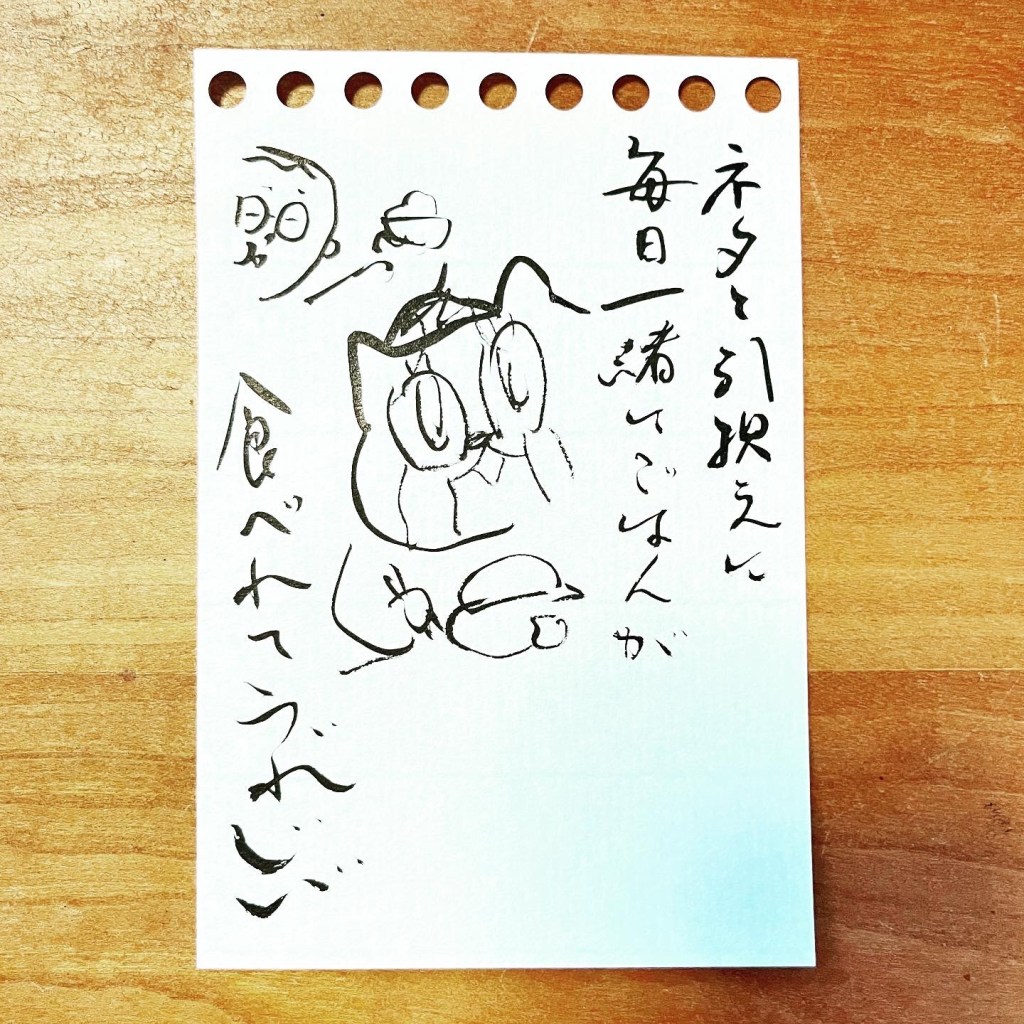 ネタと引択えに
毎日一緒にごはんが
食べれてゔれじい゙